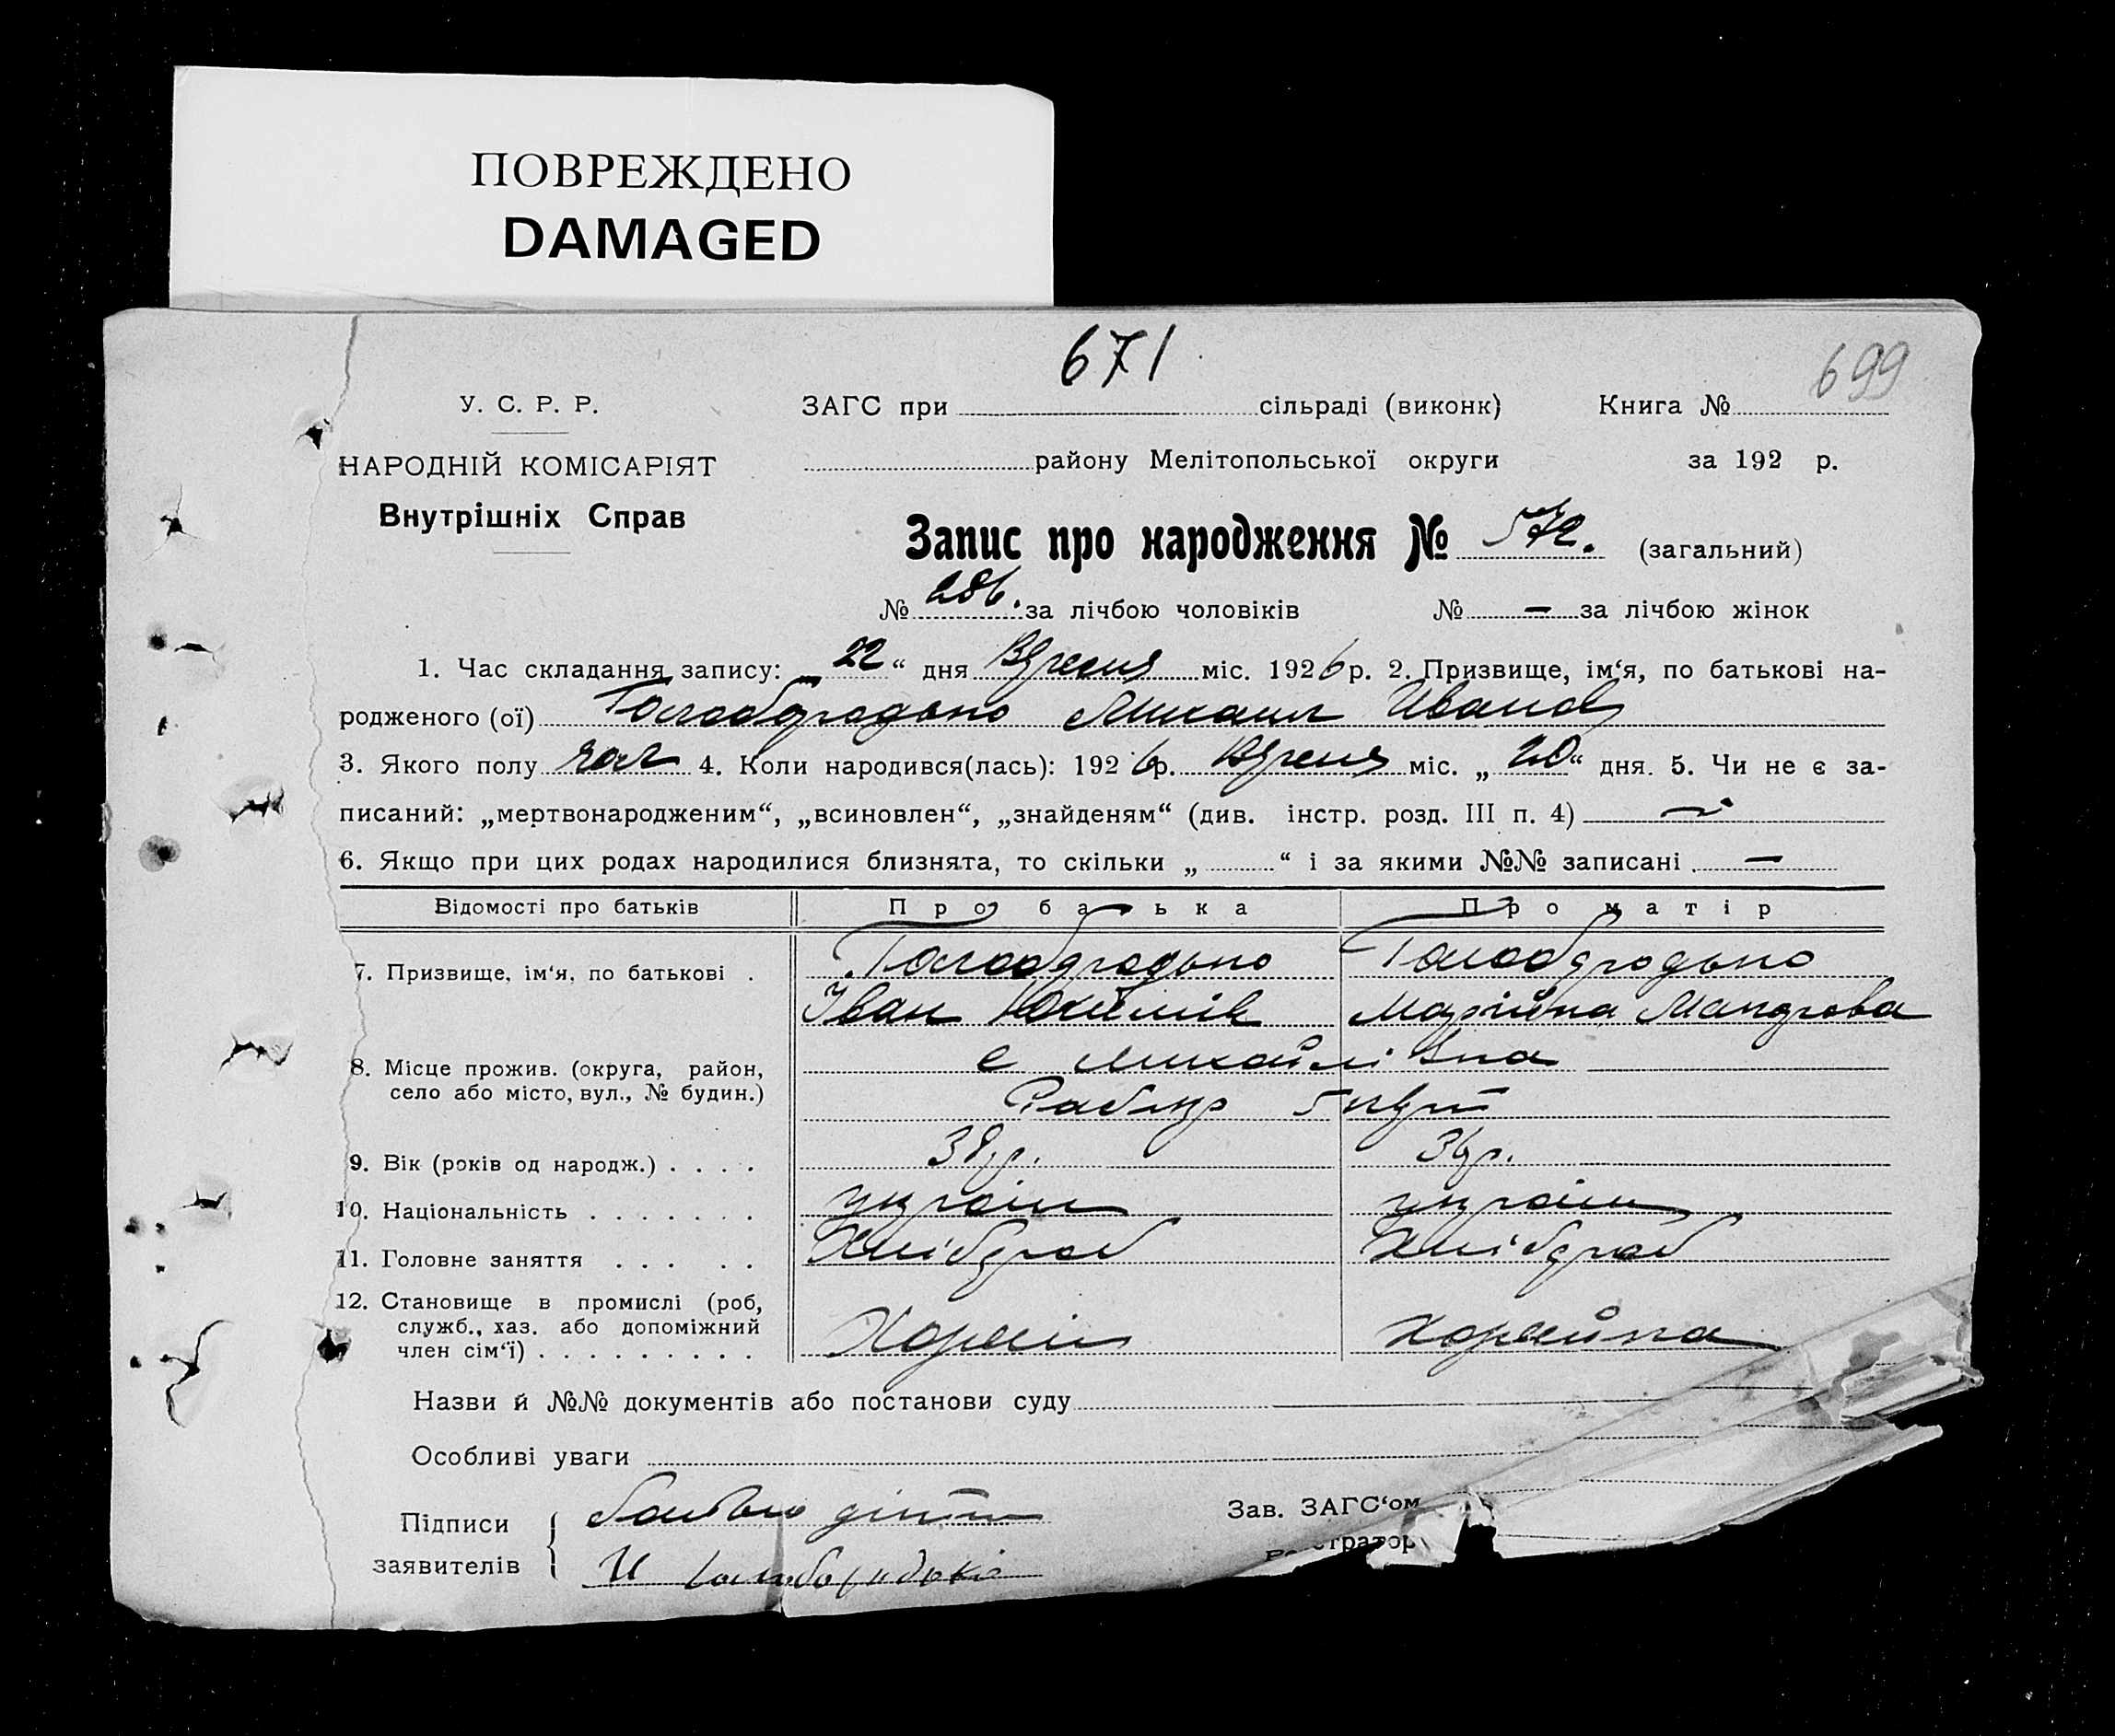 ПОВРЕЖДЕНО
DAMAGED
671
699
У. С. Р. Р.
ЗАГС при сільраді (виконк) Книга №
НАРОДНІЙ КОМІСАРІЯТ
району Мелітопольської округи за 192 р.
Внутрішніх Справ
Запис про народження № 572. (загальний)
№ 286. за лічбою чоловіків № — за лічбою жінок
1. Час складання запису: „22“ дня Вресня міс. 1926 р. 2. Призвище, ім‘я, по батькові на-
родженого (ої) Голобородько Михаил Иванов
3. Якого полу чол 4. Коли народився(лась): 1926р. Вресня міс. „20“ дня. 5. Чи не є за-
писаний: „мертвонародженим“, „всиновлен“, „знайденям“ (див. інстр. розд. III п. 4) —
6. Якщо при цих родах народилися близнята, то скільки „ “ і за якими №№ записані —
Відомості про батьків Про батька Про матір
7. Призвище, ім‘я, по батькові . Голобородько Голобородько
Іван Юхимів
8. Місце прожив. (округа, район, с Михайлівна
село або місто, вул., № будин.)
9. Вік (років од народж.) . . . . 38 р. 36 р.
10. Національність . . . . . . . україн україн
11. Головне заняття . . . . . Хлібороб Хлібороб
12. Становище в промислі (роб,
служб., хаз. або допоміжний
член сім‘ї) . . . . . . . . .
Назви й №№ документів або постанови суду
Особливі уваги
Підписи
заявителів
Зав. ЗАГС‘ом